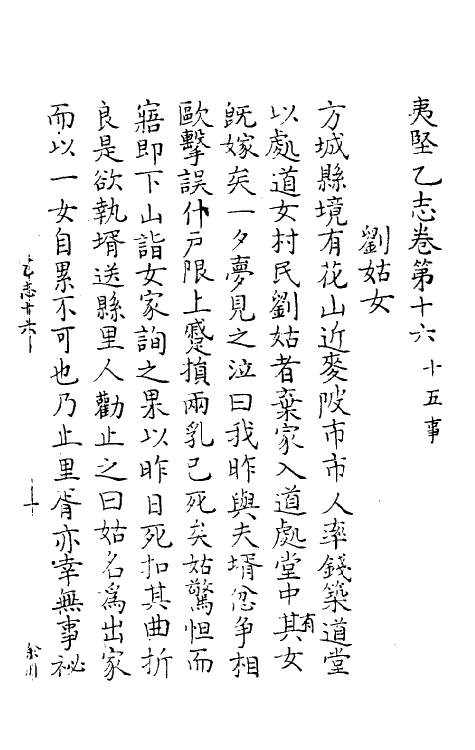 夷堅乙志卷第十六 十五事
劉姑女
方城縣境有花山近麥陂市市人率錢築道堂
以處道女村民劉姑者棄家入道處堂中其有女
旣嫁矣一夕夢見之泣曰我昨與夫壻忿爭相
毆擊誤仆戶限上蹙損兩乳已死矣姑驚怛而
寤即下山詣女家詢之果以昨日死扣其曲折
良是欲執壻送縣里人勸止之曰姑名爲出家
而以一女自累不可也乃止里胥亦幸無事祕